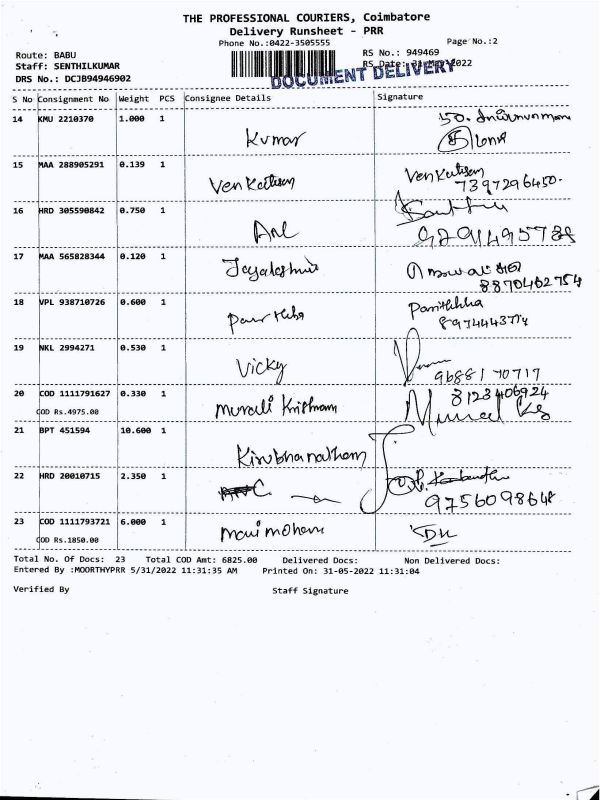 THE PROFESSIONAL COURIERS, Coimbatore
Delivery Runsheet - PRR
Phone No.:0422-3505555 Page No.:2
Route: BABU RS No.: 949469
Staff: SENTHILKUMAR RS Date: 31-May-2022
DOCUMENT DELIVERY
DRS No.: DCJB94946902
S No Consignment No Weight PCS Consignee Details Signature
14 KMU 2210370 1.000 1
Kumar
15 MAA 288905291 0.139 1
Venkatesan Venkatesan
7397296450.
16 HRD 305590842 0.750 1
17 MAA 565828344 0.120 1
8870462754
18 VPL 938710726 0.600 1
19 NKL 2994271 0.530 1
Vicky
9688170717
20 COD 1111791627 0.330 1 8123406924
COD Rs.4975.00 Murali Krishnan
21 BPT 451594 10.600 1
Kirubhanatham
22 HRD 20010715 2.350 1
9756098648
23 COD 1111793721 6.000 1
COD Rs.1850.00
Total No. Of Docs: 23 Total COD Amt: 6825.00 Delivered Docs: Non Delivered Docs:
Entered By :MOORTHYPRR 5/31/2022 11:31:35 AM Printed On: 31-05-2022 11:31:04
Verified By Staff Signature